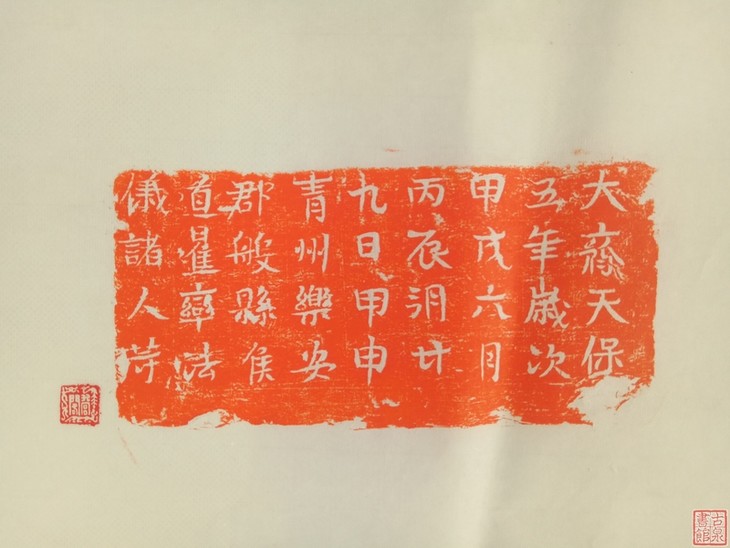 大齊天保
五年歲次
甲戌六月
丙辰朔廿
九日甲申
青州樂安
郡般縣侯
道暹率法
儀諸人等
古泉
書館